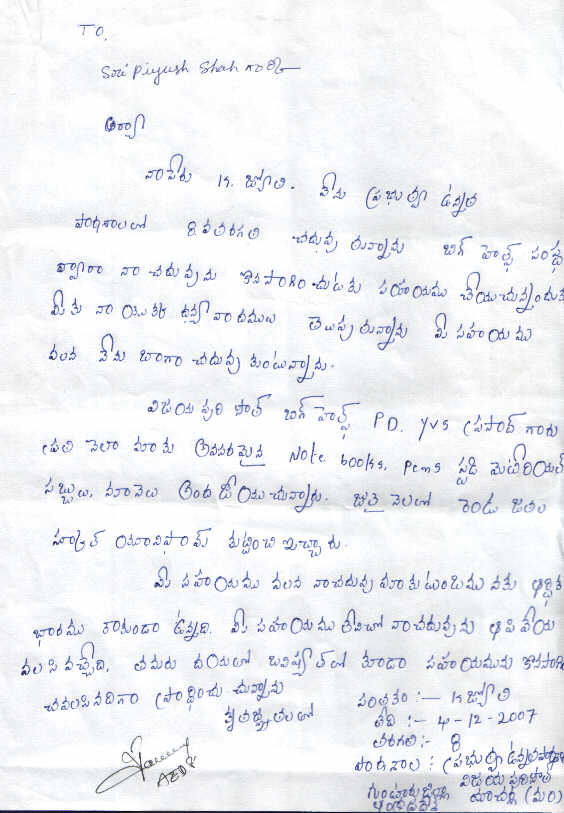 TO,
Sri Piyush Shah గారికి
ఆర్యా
నాపేరు K. జ్యోతి. నేను ప్రభుత్వ ఉన్నత
పాఠశాలలో 8 వతరగతి చదువు తున్నాను బిగ్ హెల్ప్ సంస్థ
ద్వారా నా చదువును కొనసాగించుటకు సహాయము చేయుచున్నందుకు
మీకు నా యొక్క ధన్యవాదములు తెలుపు తున్నాను మీ సహాయము
వలన నేను బాగా చదువు కుంటున్నాను.
విజయ పురి సౌత్ బిగ్ హెల్ప్ PD. YVS ప్రసాద్ గారు
ప్రతి నెలా మాకు అవసరమైన Note books, Pens స్టడి మెటీరియల్
సబ్బులు, నూనెలు అంద జేయు చున్నారు. జూన్ నెలలో రెండు జతల
స్కూల్ యూనిఫామ్ కుట్టించి ఇచ్చారు.
మీ సహాయము వలన నాచదువు మాకుటుంబము నకు ఆర్థిక
భారము కాకుండా ఉన్నది. మీ సహాయము లేనిచో నాచదువును ఆపి వేయ
వలసి వచ్చేది. తమరు దయతో భవిష్యత్ లో కూడా సహాయమును కొనసాగిం
చవలసినదిగా ప్రార్థించు చున్నాను
కృతజ్ఞతలతో
సంతకం :- K జ్యోతి
తేది :- 4-12-2007
తరగతి:- 8
పాఠశాల : ప్రభుత్వ ఉన్నతపాఠశాల
విజయ పురిసౌత్
గుంటూరుజిల్లా మాచర్ల (మం)
ఆంధ్రప్రదేశ్